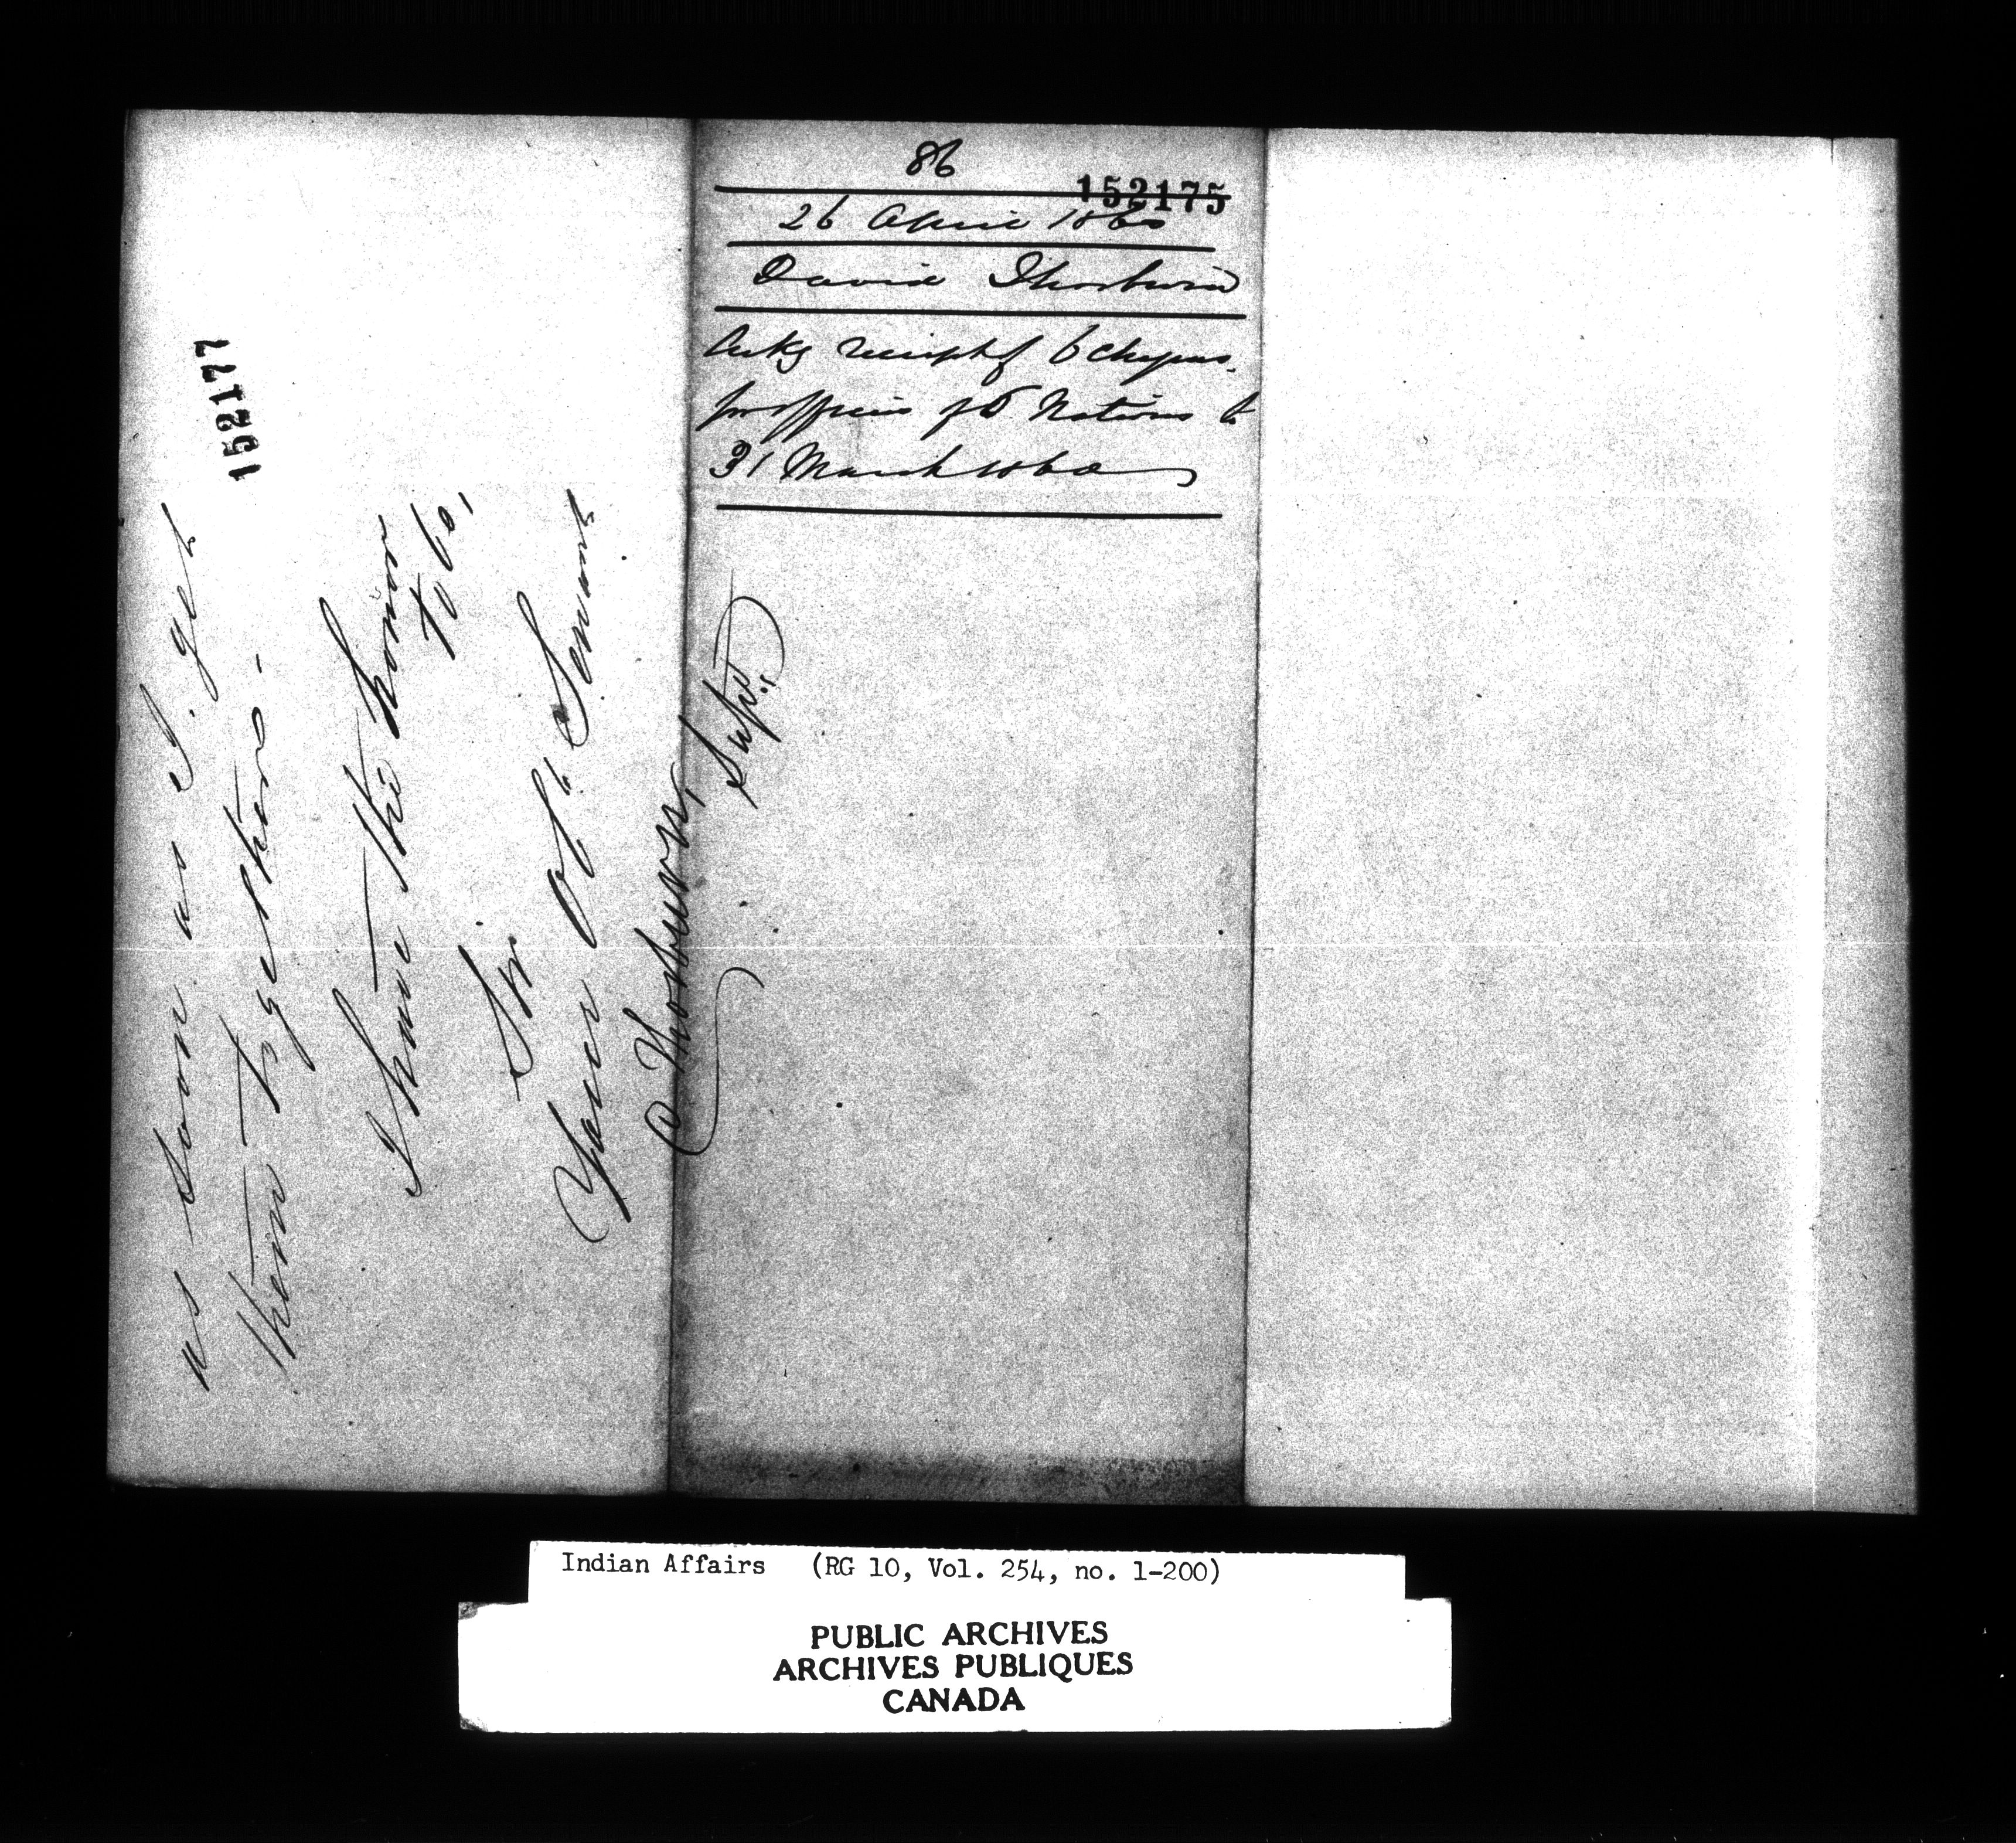 152177
as soon as I. get
them together -
I have the honor
to be,
Sir.
Your Obt. Servant
D Thorburn,
Supt.
86
152175
26 April 1860
David Thorburn
Ackg receipt of 6 cheques.
for officers of 6 Nations to
31 March 1860
Indian Affairs (RG 10, Vol. 254, no. 1-200)
PUBLIC ARCHIVES
ARCHIVES PUBLIQUES
CANADA